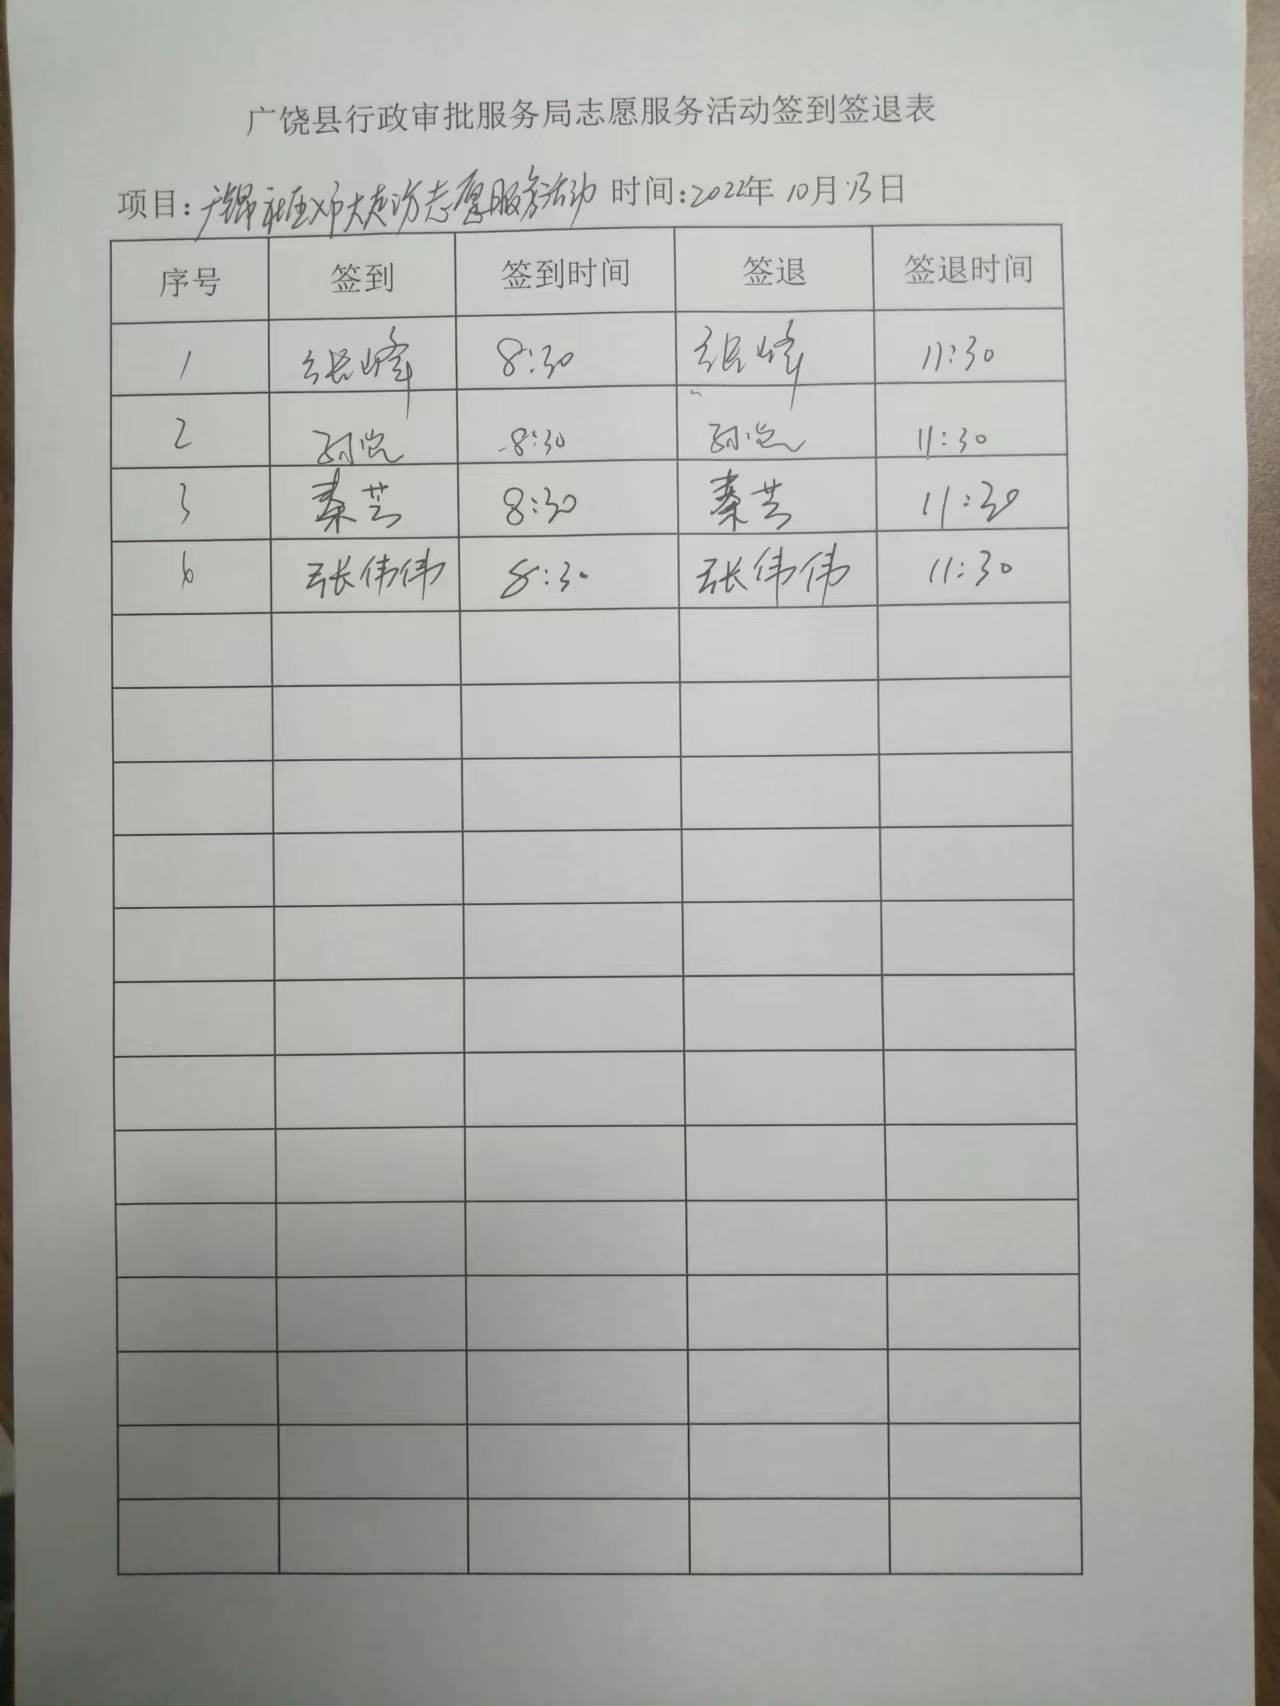 广饶县行政审批服务局志愿服务活动签到签退表
项目:广锦社区邓大走访志愿服务活动 时间:2022年10月13日
序号 签到 签到时间 签退 签退时间
1 张峰 8:30 张峰 11:30
2 8:30 11:30
3 秦芸 8:30 秦芸 11:30
6 张伟伟 8:30 张伟伟 11:30